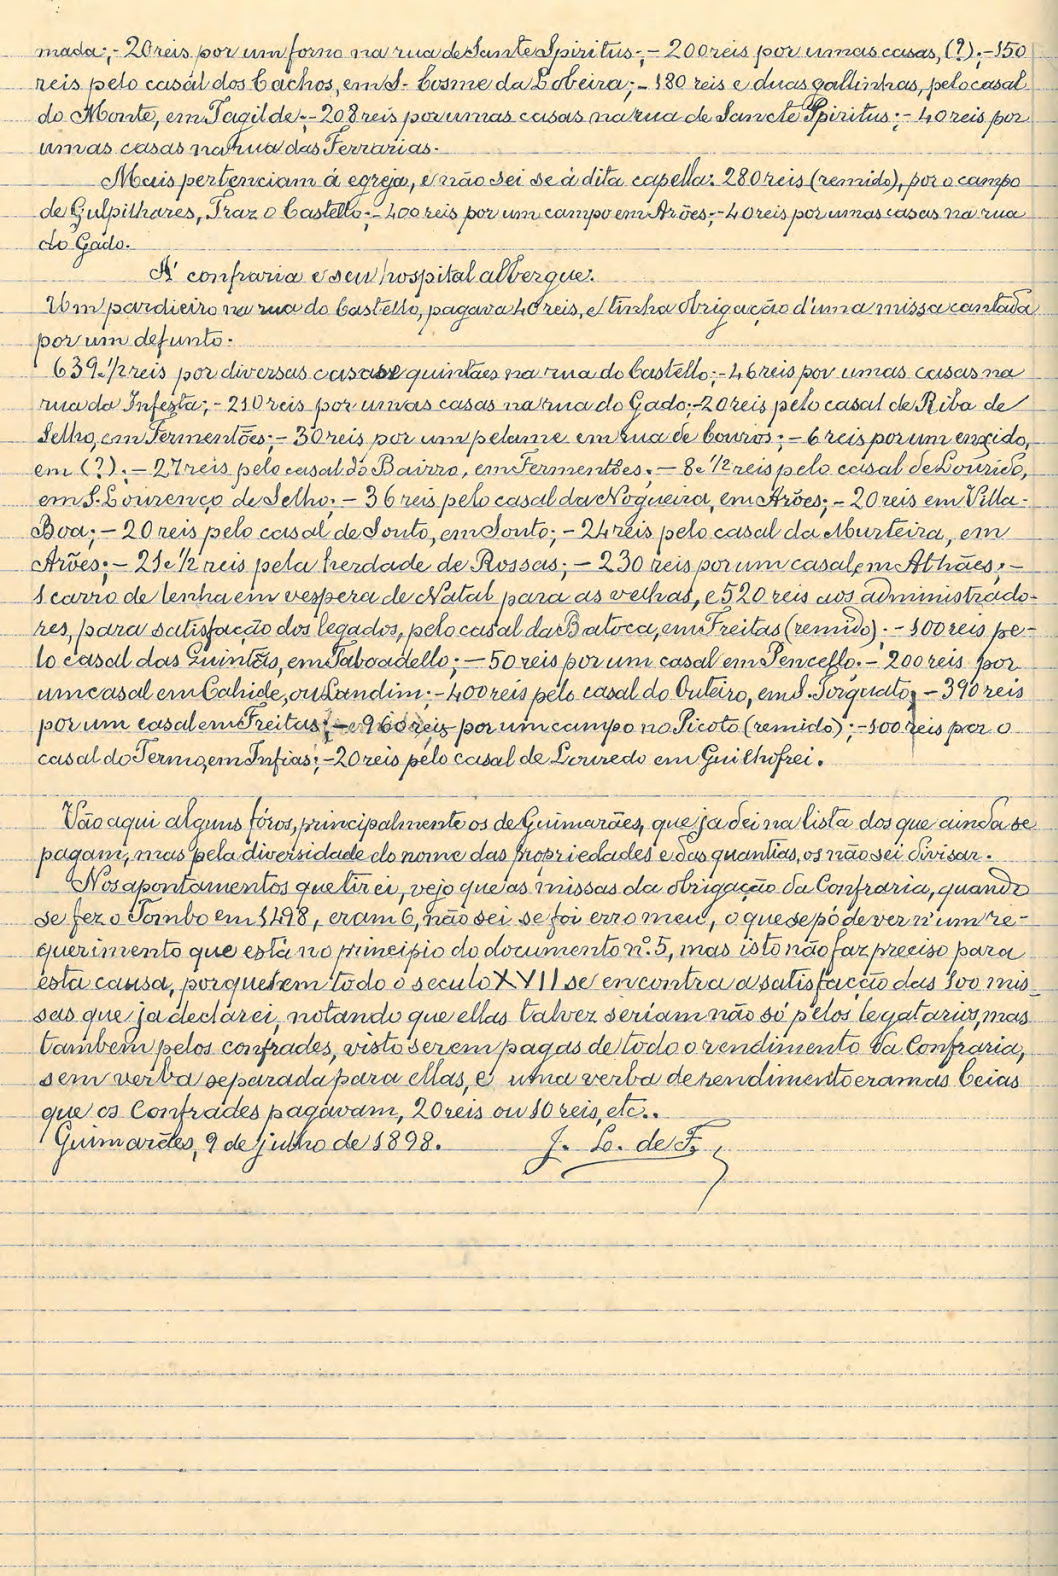 mada;- 20 reis por um forno na rua de Sante Spiritus;- 200 reis por umas casas, (?);- 150
reis pelo casál dos Cachos, em S. Cosme da Lobeira;- 180 reis e duas gallinhas, pelo casal
do Monte, em Tagilde;- 208 reis por umas casas na rua de Sancte Spiritus;- 40 reis por
umas casas na rua das Ferrarias.
Mais pertenciam á egreja, e não sei se á dita capella: 280 reis (remido), por o campo
de Gulpilhares, Traz o Castello;- 400 reis por um campo em Arões;- 40 reis por umas casas na rua
do Gado.
A' confraria e seu hospital albergue.
Um pardieiro na rua do Castello, pagava 40 reis, e tinha obrigação d'uma missa cantada
por um defunto.
639 e 1/2 reis por diversas casas e quintães na rua do Castello;- 46 reis por umas casas na
rua da Infesta;- 210 reis por umas casas na rua do Gado;- 20 reis pelo casal de Riba de
Selho, em Fermentões;- 30 reis por um pelame em rua de Couros;- 6 reis por um enxido,
em (?);- 27 reis pelo casal do Bairro, em Fermentões;- 8 e 1/2 reis pelo casal de Lourido,
em S. Lourenço de Selho;- 36 reis pelo casal da Nogueira, em Arões;- 20 reis em Villa-
Boa;- 20 reis pelo casal de Souto, em Souto;- 24 reis pelo casal da Murteira, em
Arões;- 21 e 1/2 reis pela herdade de Rossas;- 230 reis por um casal, em Athães;-
1 carro de lenha em vespera de Natal para as velhas, e 520 reis aos administrado-
res, para satisfacção dos legados, pelo casal da Batoca, em Freitas (remido);- 100 reis pe-
lo casal das Quintãs, em Taboadello;- 50 reis por um casal em Pencello;- 200 reis por
um casal em Cahide, ou Landim;- 400 reis pelo casal do Outeiro, em S. Torquato;- 390 reis
por um casal em Freitas;- 960 reis por um campo no Picoto (remido);- 100 reis por o
casal do Termo, em Infias;- 20 reis pelo casal de Louredo em Guilhofrei.
Vão aqui alguns fóros, principalmente os de Guimarães, que ja dei na lista dos que ainda se
pagam, mas pela diversidade do nome das propriedades e das quantias, os não sei divisar.
Nos apontamentos que tirei, vejo que as missas da obrigação da Confraria, quando
se fez o Tombo em 1498, eram 6, não sei se foi erro meu, o que se póde ver n'um re-
querimento que está no principio do documento nº. 5, mas isto não faz preciso para
esta causa, porque em todo o seculo XVII se encontra a satisfacção das 100 mis-
sas que ja declarei, notando que ellas talvez seriam não só pelos legatarios, mas
tambem pelos confrades, visto serem pagas de todo o rendimento da Confraria,
sem verba separada para ellas, e uma verba de rendimento eram as ceias
que os Confrades pagavam, 20 reis ou 10 reis, etc..
Guimarães, 9 de julho de 1898. J. L. de F.